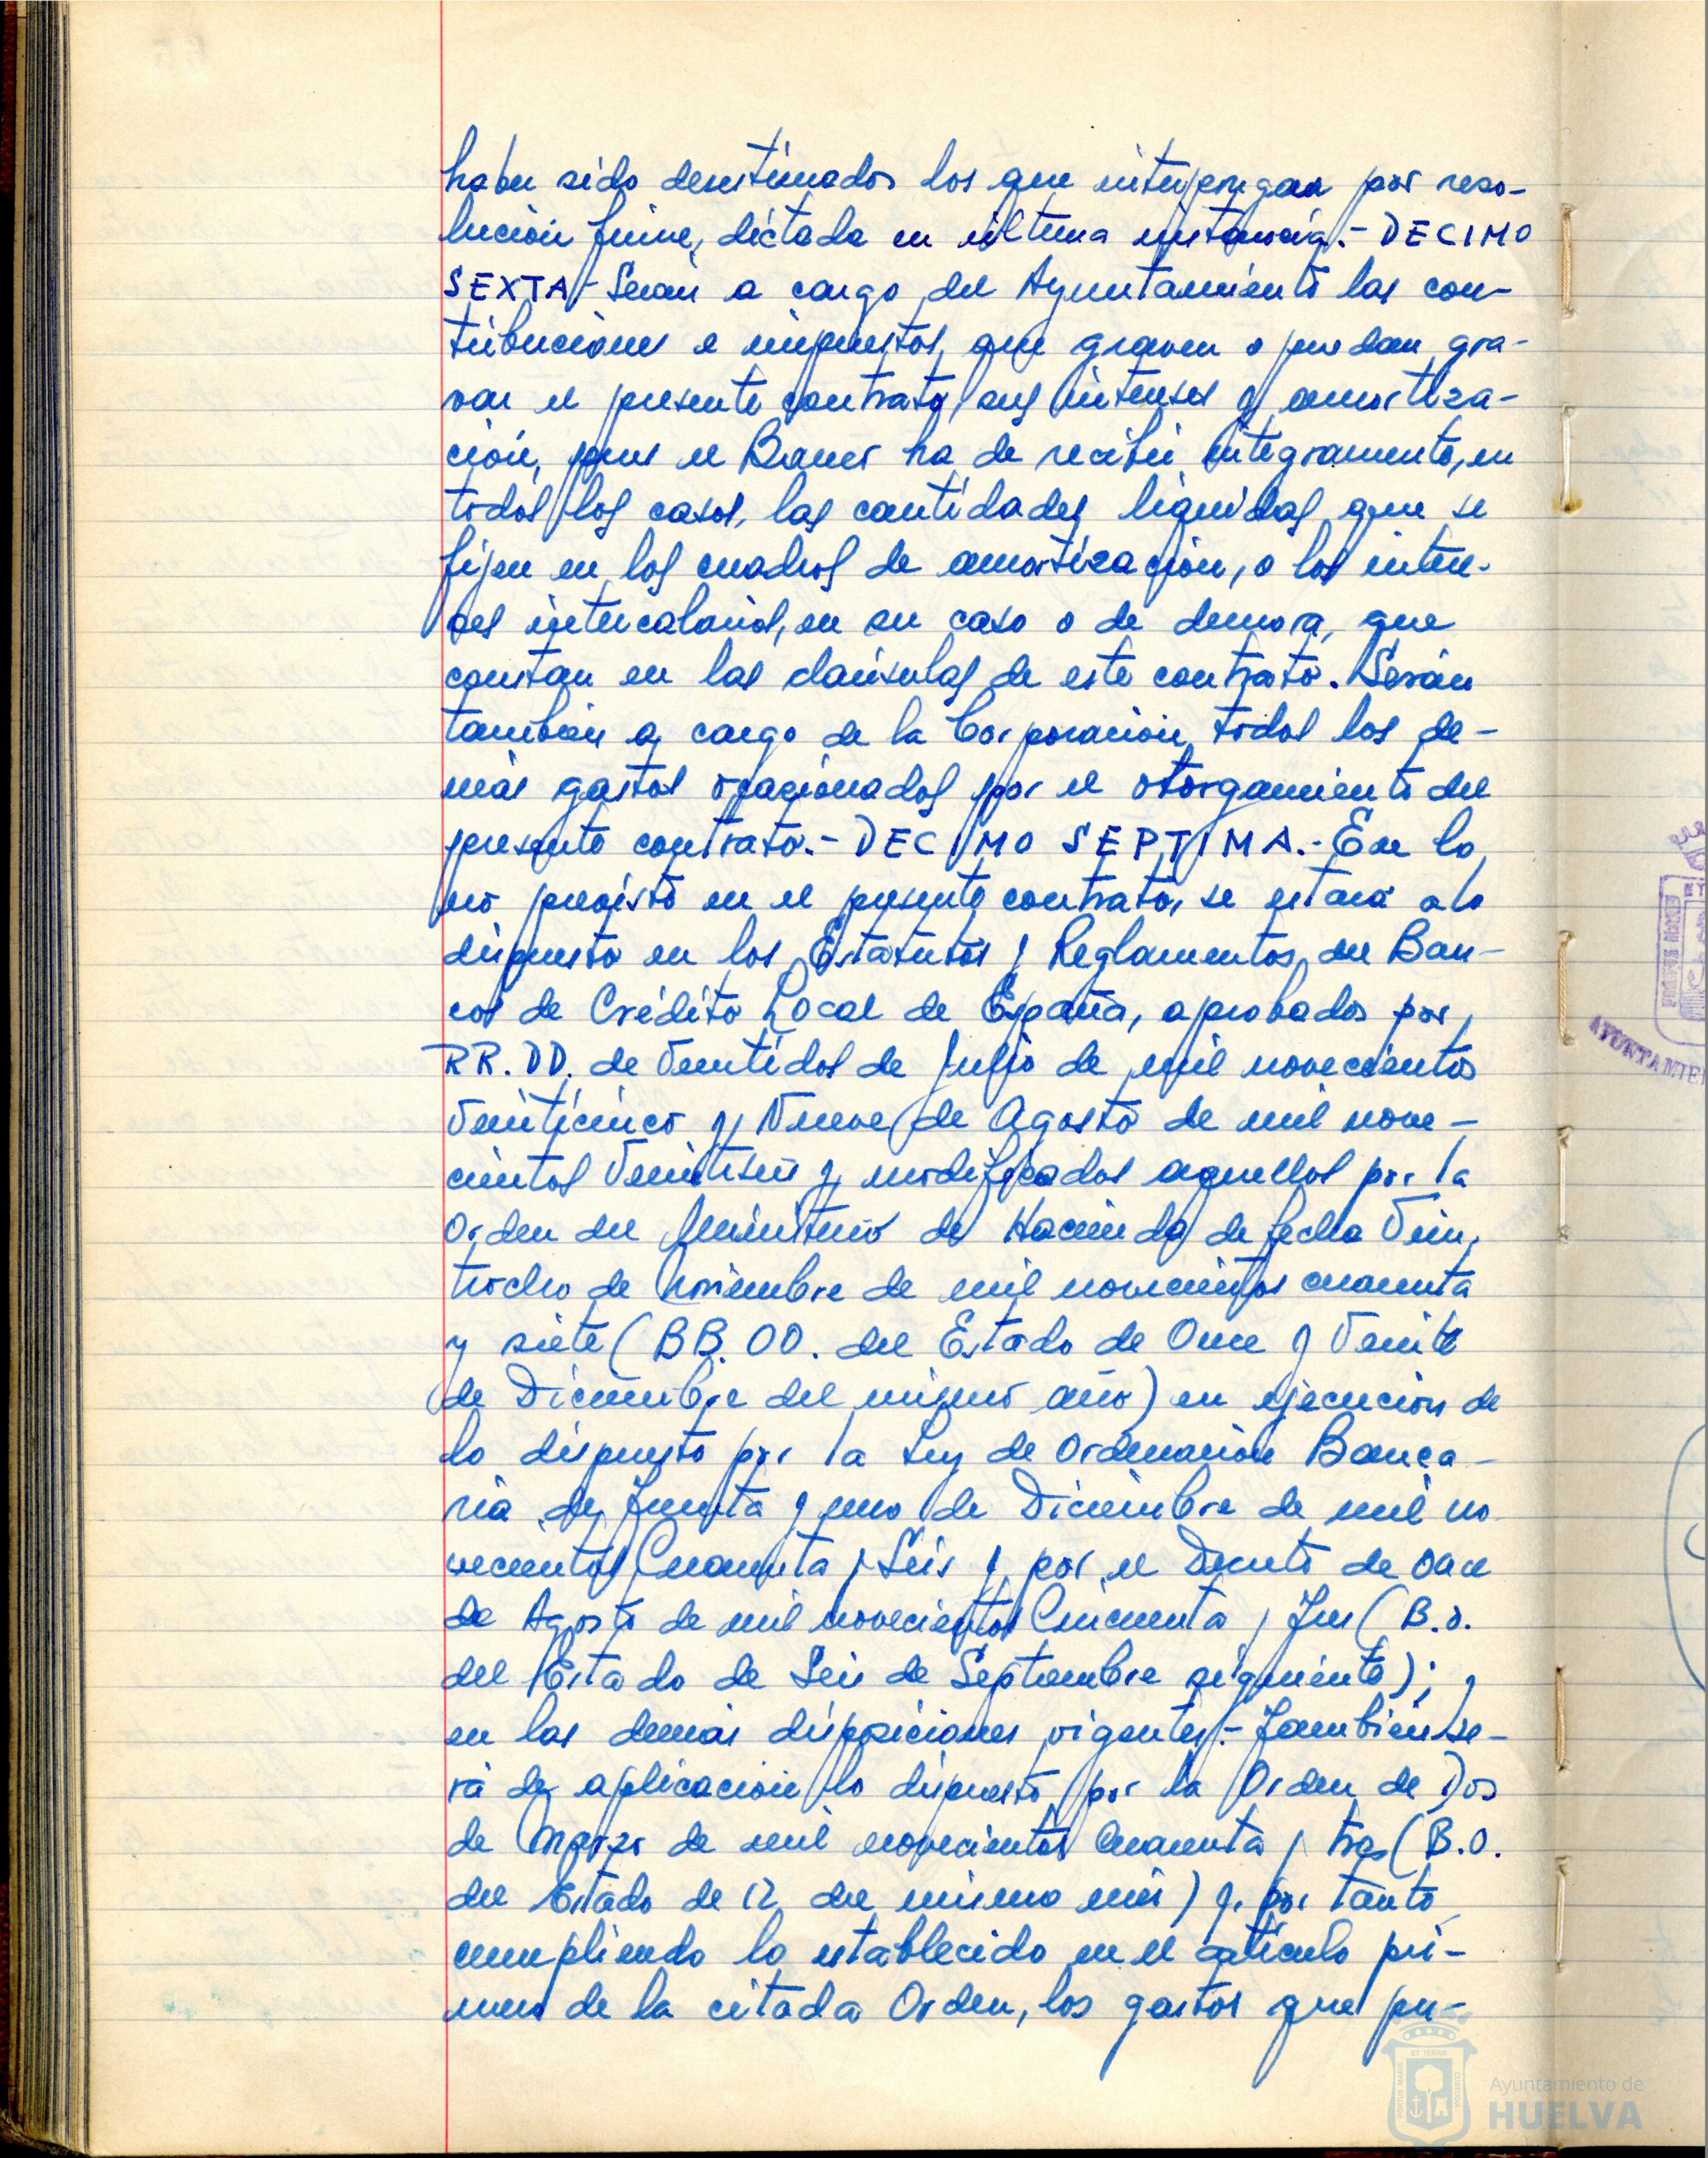 haber sido desestimados los que interpongan por reso-
lución firme, dictada en última instancia.- DECIMO
SEXTA.- Serán a cargo del Ayuntamiento las con-
tribuciones e impuestos, que graven o puedan gra-
var el presente contrato, sus intereses y amortiza-
ción, pues el Banco ha de recibir íntegramente, en
todos los casos, las cantidades líquidas que se
fijen en los cuadros de amortización, o los intere-
ses intercalarios, en su caso o de demora, que
constan en las cláusulas de este contrato. Serán
también a cargo de la Corporación todos los de-
más gastos ocasionados por el otorgamiento del
presente contrato.- DECIMO SEPTIMA.- En lo
no previsto en el presente contrato, se estará a lo
dispuesto en los Estatutos y Reglamentos del Ban-
cos de Crédito Local de España, aprobados por
RR.DD. de Veintidos de Julio de mil novecientos
Veinticinco y Nueve de Agosto de mil nove-
cientos Veintiseis y modificados aquellos por la
Orden del Ministerio de Hacienda de fecha Vein-
tiocho de Noviembre de mil novecientos cuarenta
y siete (BB.OO. del Estado de Once y Veinte
de Diciembre del mismo año) en ejecución de
lo dispuesto por la Ley de Ordenación Banca-
ria de Treinta y uno de Diciembre de mil no
vecientos Cuarenta y Seis y por el Decreto de Once
de Agosto de mil novecientos Cincuenta y Tres (B.O.
del Estado de Seis de Septiembre siguiente); y
en las demás disposiciones vigentes.- También se-
rá de aplicación lo dispuesto por la Orden de Dos
de Marzo de mil novecientos Cuarenta y tres (B.O.
del Estado de 12 del mismo mes) y, por tanto
cumpliendo lo establecido en el artículo pri-
mero de la citada Orden, los gastos que pu-
AYUNTAMIE
Ayuntamiento de
HUELVA